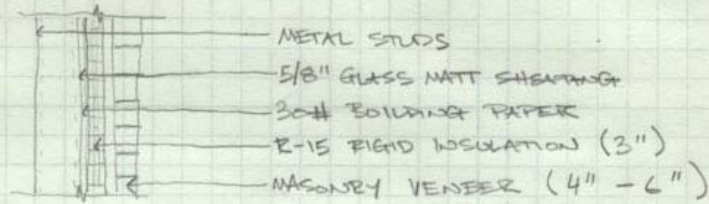 METAL STUDS
5/8" GLASS MATT SHEATANG
30# BUILDING PAPER
R-15 RIGID INSULATION (3")
MASONRY VENEER (4" - 6")